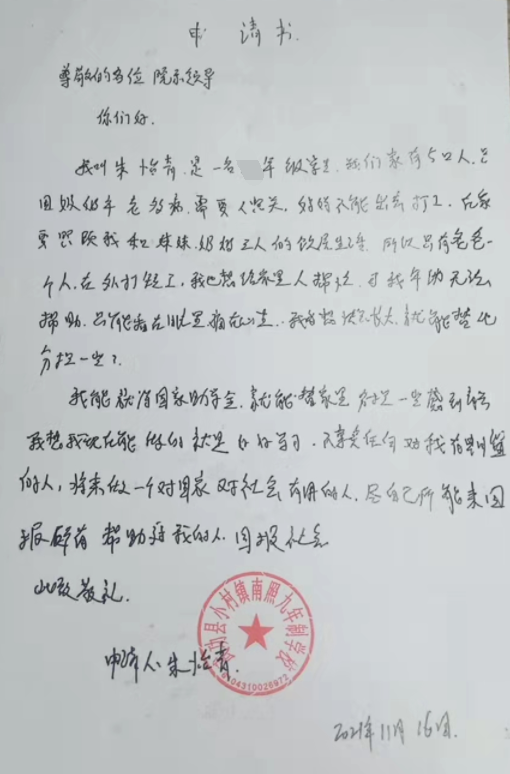 申请书
尊敬的各位院系领导
你们好.
我叫朱怡青.是一名 年级学生.我们家有5口人.只
因奶奶年老多病.需要人照关.妈妈不能出去打工.在家
要照顾我和妹妹.奶奶三人的饮居生活.所以只有爸爸一
个人.在外打短工.我也想给家里人帮. 我年幼无法
帮助.只能看在眼里痛在心里.我希望快快长大.就能替他
分担一些了.
我能获得国家助学金.就能替家里分担一些
我想我现在能做的就是好好学习.不辜负任何对我有
的人.将来做一个对国家对社会有用的人.尽自己所能来回
报所有帮助过我的人.回报社会
此致敬礼.
县小村镇南照九年制学校
04310026972
申请人:朱怡青.
2021年11月16日.